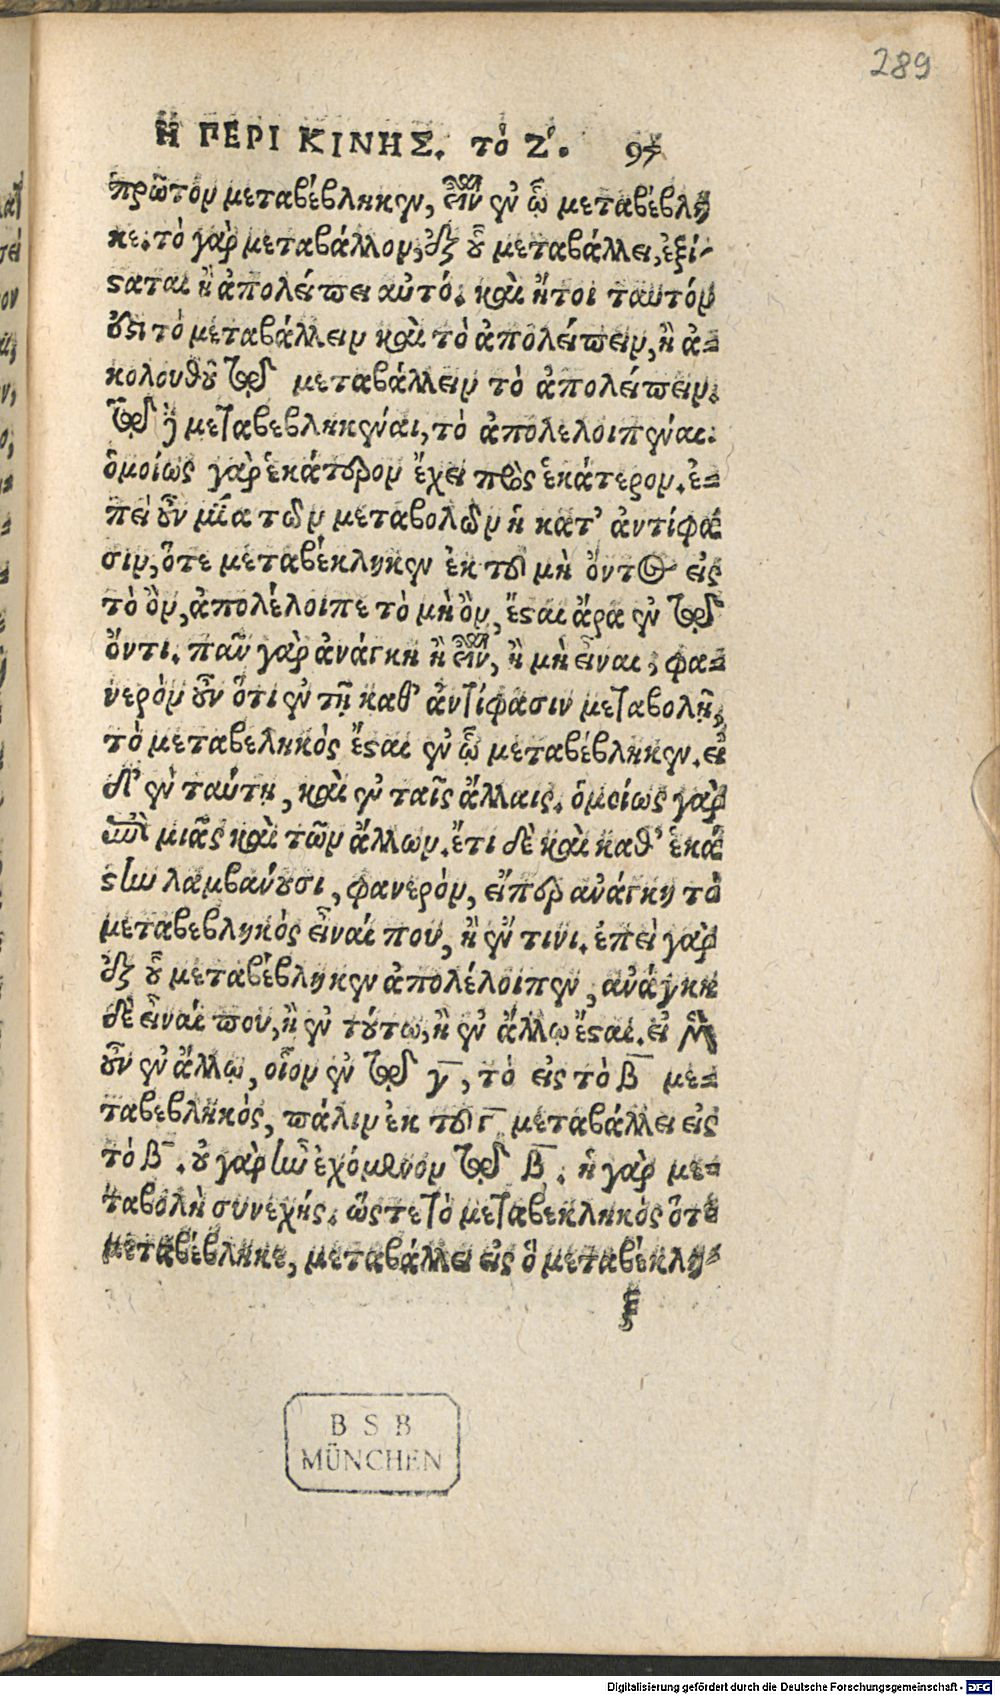 289
Η ΠΕΡΙ ΚΙΝΗΣ. τὸ Ζ. 97
πρῶτον μεταβέβληκεν, ἐστὶν ἐν ᾧ μεταβέβλη
κε. τὸ γὰρ μεταβάλλον, ἐξ οὗ μεταβάλλει, ἐξί-
σαται ἢ ἀπολείπει αὐτό. καὶ ἤτοι ταυτόν
ἐστι τὸ μεταβάλλειν καὶ τὸ ἀπολείπειν, ἢ ἀ=
κολουθεῖ τῷ μεταβάλλειν τὸ ἀπολείπειν.
τῷ δὲ μεταβεβληκέναι, τὸ ἀπολελοιπέναι.
ὁμοίως γὰρ ἑκάτερον ἔχει πρὸς ἑκάτερον. ἐ=
πεὶ οὖν μία τῶν μεταβολῶν ἡ κατ' ἀντίφα
σιν, ὅτε μεταβέκληκεν ἐκ τοῦ μὴ ὄντος εἰς
τὸ ὂν, ἀπολέλοιπε τὸ μὴ ὂν, ἔσται ἄρα ἐν τῷ
ὄντι. πᾶν γὰρ ἀνάγκη ἢ εἶναι, ἢ μὴ εἶναι. φα=
νερὸν οὖν ὅτι ἐν τῇ καθ' ἀντίφασιν μεταβολῇ,
τὸ μεταβεληκὸς ἔσται ἐν ᾧ μεταβέβληκεν. εἰ
δ' ἐν ταύτῃ, καὶ ἐν ταῖς ἄλλαις. ὁμοίως γὰρ
ἐπὶ μιᾶς καὶ τῶν ἄλλων. ἔτι δὲ καὶ καθ' ἑκά
στην λαμβάνουσι, φανερὸν, εἴπερ ἀνάγκη τὸ
μεταβεβληκὸς εἶναί που, ἢ ἔν τινι. ἐπεὶ γὰρ
ἐξ οὗ μεταβέβληκεν ἀπολέλοιπεν, ἀνάγκη
δὲ εἶναί που, ἢ ἐν τούτω, ἢ ἐν ἄλλῳ ἔσται. εἰ μὲν
οὖν ἐν ἄλλῳ, οἷον ἐν τῷ γ, τὸ εἰς τὸ β με=
ταβεβληκὸς, πάλιν ἐκ τοῦ γ μεταβάλλει εἰς
τὸ β. οὐ γὰρ ἦν ἐχόμενον τῷ β. ἡ γὰρ με=
ταβολὴ συνεχής. ὥστε τὸ μεταβεκληκὸς ὅτε
μεταβέβληκε, μεταβάλλει εἰς ὃ μεταβέκλη-
ξ
BSB
MÜNCHEN
Digitalisierung gefördert durch die Deutsche Forschungsgemeinschaft - DFG